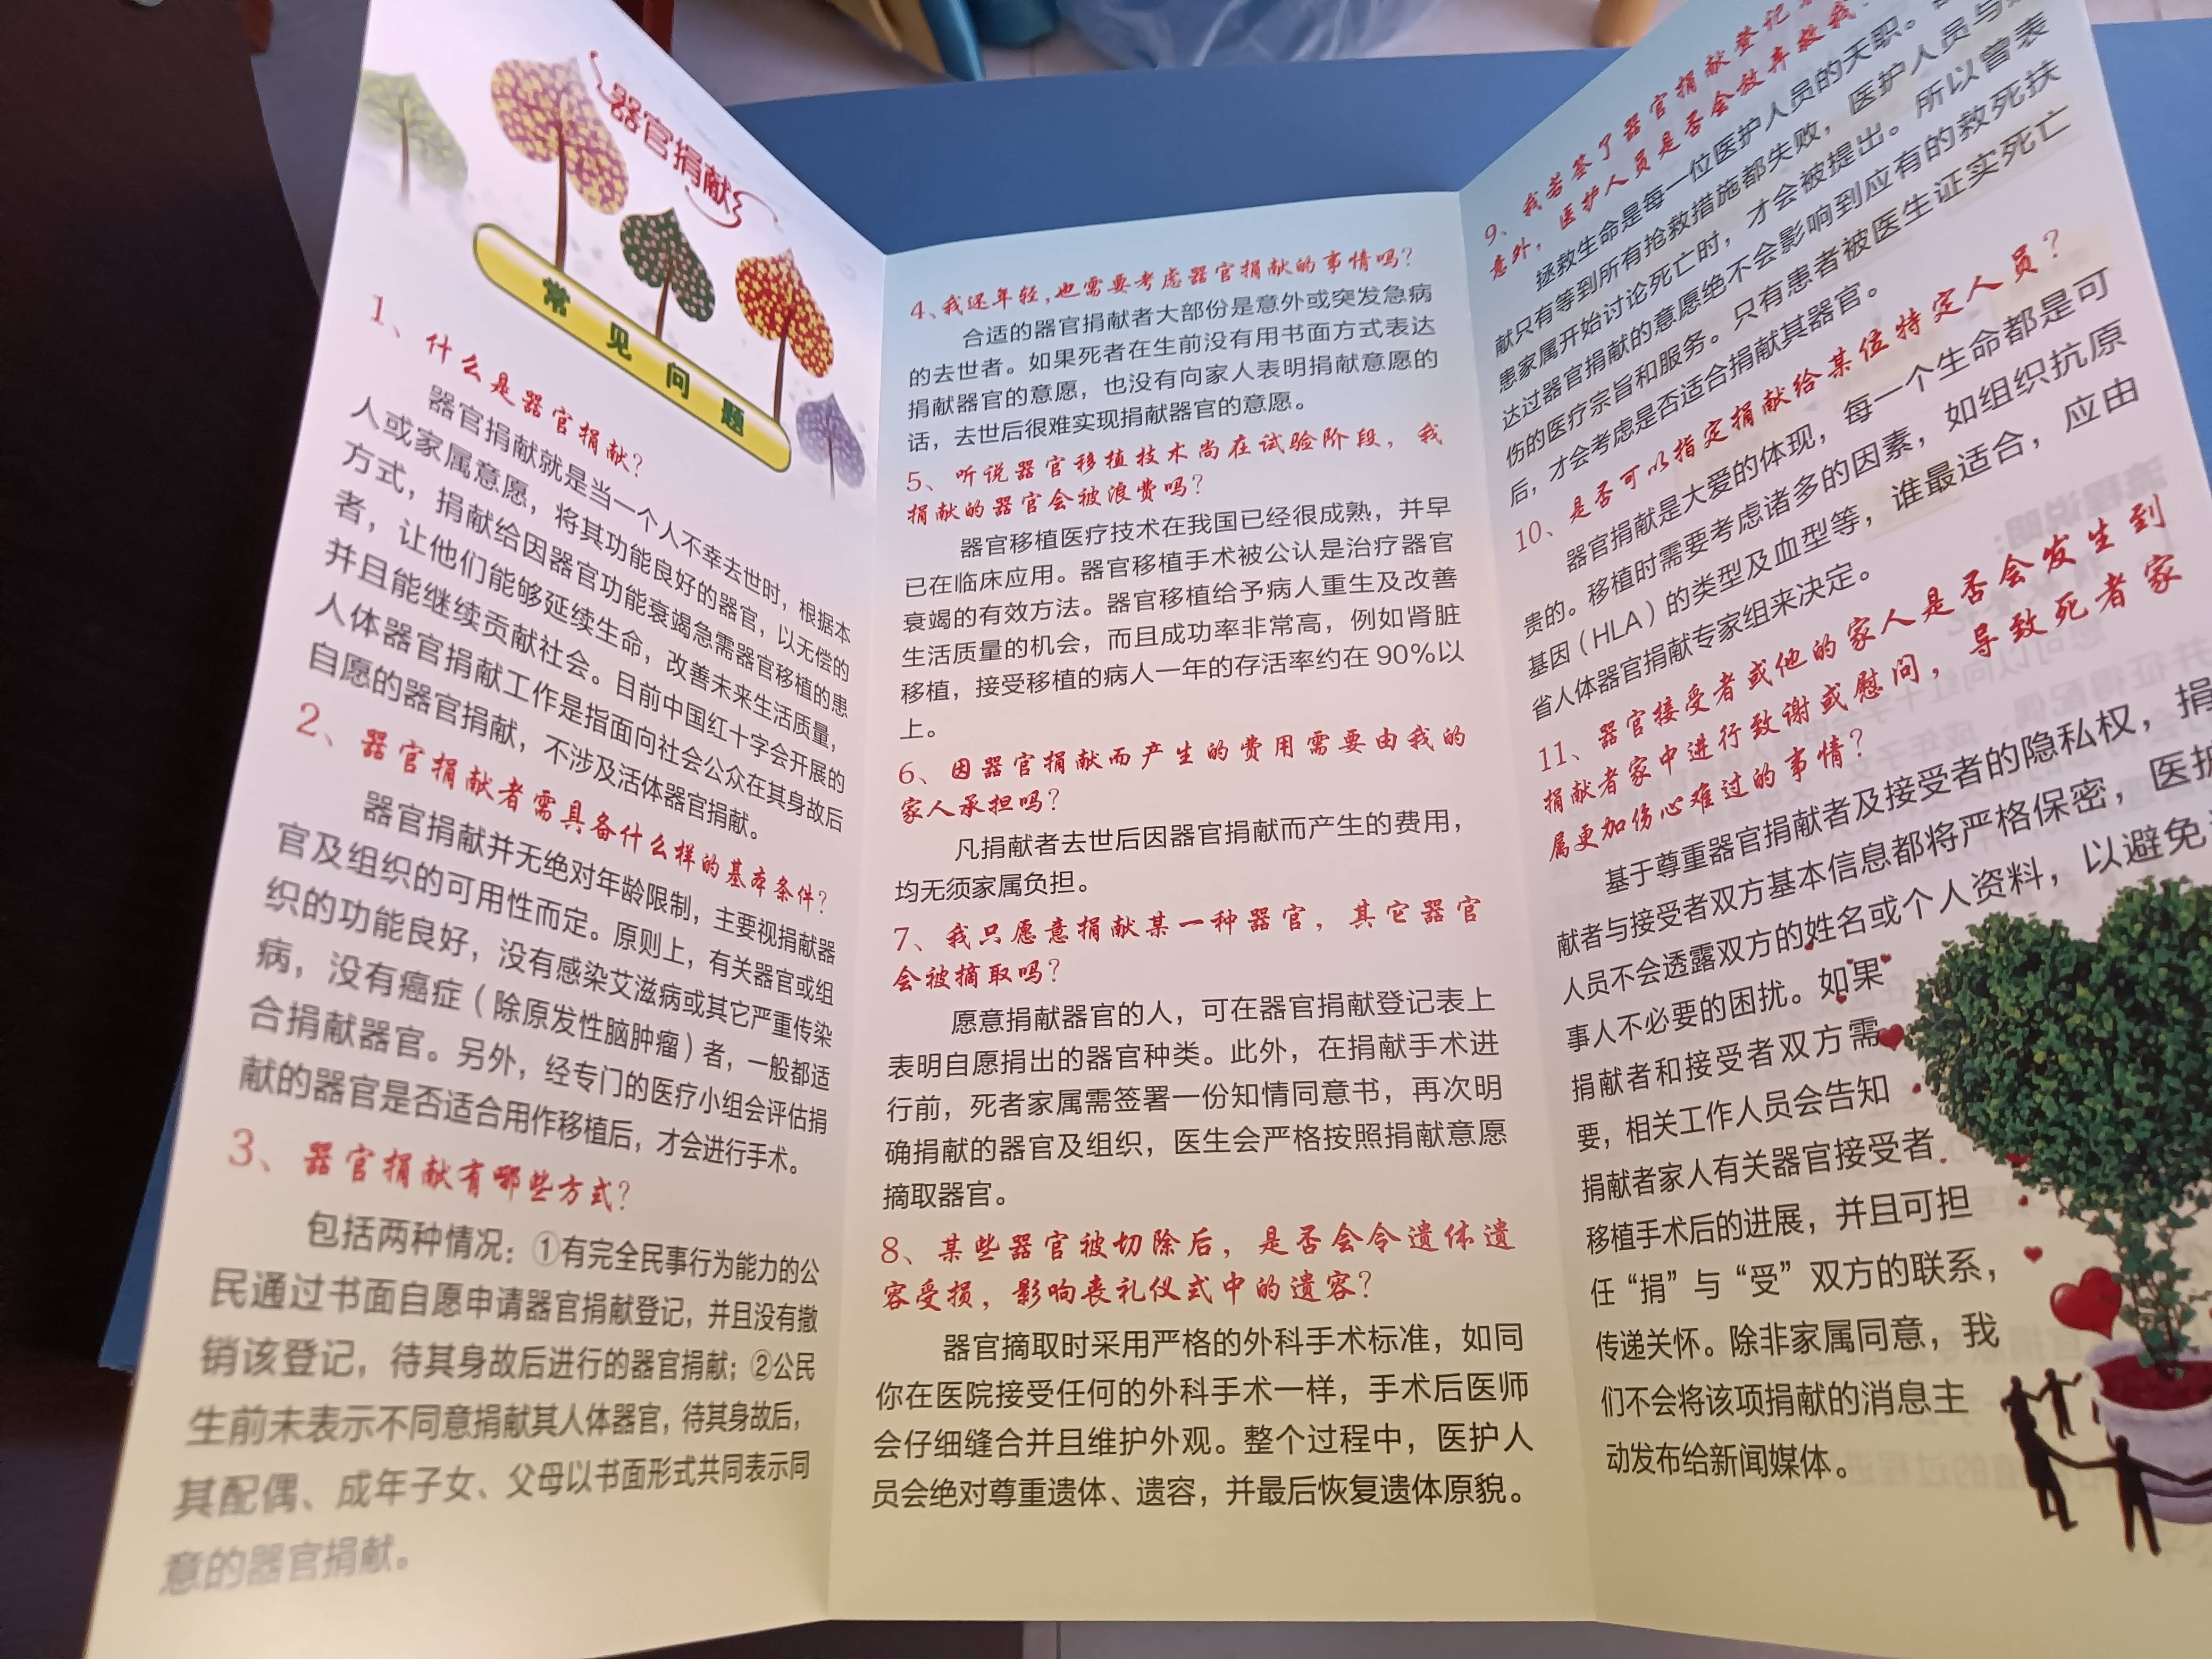 器官捐献
常见问题
1、什么是器官捐献？
器官捐献就是当一个人不幸去世时，根据本
人或家属意愿，将其功能良好的器官，以无偿的
方式，捐献给因器官功能衰竭急需器官移植的患
者，让他们能够延续生命，改善未来生活质量，
并且能继续贡献社会。目前中国红十字会开展的
人体器官捐献工作是指面向社会公众在其身故后
自愿的器官捐献，不涉及活体器官捐献。
2、器官捐献者需具备什么样的基本条件？
器官捐献并无绝对年龄限制，主要视捐献器
官及组织的可用性而定。原则上，有关器官或组
织的功能良好，没有感染艾滋病或其它严重传染
病，没有癌症（除原发性脑肿瘤）者，一般都适
合捐献器官。另外，经专门的医疗小组会评估捐
献的器官是否适合用作移植后，才会进行手术。
3、器官捐献有哪些方式？
包括两种情况：①有完全民事行为能力的公
民通过书面自愿申请器官捐献登记，并且没有撤
销该登记，待其身故后进行的器官捐献；②公民
生前未表示不同意捐献其人体器官，待其身故后，
其配偶、成年子女、父母以书面形式共同表示同
意的器官捐献。
4、我还年轻，也需要考虑器官捐献的事情吗？
合适的器官捐献者大部份是意外或突发急病
的去世者。如果死者在生前没有用书面方式表达
捐献器官的意愿，也没有向家人表明捐献意愿的
话，去世后很难实现捐献器官的意愿。
5、听说器官移植技术尚在试验阶段，我
捐献的器官会被浪费吗？
器官移植医疗技术在我国已经很成熟，并早
已在临床应用。器官移植手术被公认是治疗器官
衰竭的有效方法。器官移植给予病人重生及改善
生活质量的机会，而且成功率非常高，例如肾脏
移植，接受移植的病人一年的存活率约在 90%以
上。
6、因器官捐献而产生的费用需要由我的
家人承担吗？
凡捐献者去世后因器官捐献而产生的费用，
均无须家属负担。
7、我只愿意捐献某一种器官，其它器官
会被摘取吗？
愿意捐献器官的人，可在器官捐献登记表上
表明自愿捐出的器官种类。此外，在捐献手术进
行前，死者家属需签署一份知情同意书，再次明
确捐献的器官及组织，医生会严格按照捐献意愿
摘取器官。
8、某些器官被切除后，是否会令遗体遗
容受损，影响丧礼仪式中的遗容？
器官摘取时采用严格的外科手术标准，如同
你在医院接受任何的外科手术一样，手术后医师
会仔细缝合并且维护外观。整个过程中，医护人
员会绝对尊重遗体、遗容，并最后恢复遗体原貌。
9、我若签了器官捐献登记
意外，医护人员是否会放弃救我
拯救生命是每一位医护人员的天职。
献只有等到所有抢救措施都失败，医护人员与
患家属开始讨论死亡时，才会被提出。所以曾表
达过器官捐献的意愿绝不会影响到应有的救死扶
伤的医疗宗旨和服务。只有患者被医生证实死亡
后，才会考虑是否适合捐献其器官。
10、是否可以指定捐献给某位特定人员？
器官捐献是大爱的体现，每一个生命都是可
贵的。移植时需要考虑诸多的因素，如组织抗原
基因（HLA）的类型及血型等，谁最适合，应由
省人体器官捐献专家组来决定。
11、器官接受者或他的家人是否会发生到
捐献者家中进行致谢或慰问，导致死者家
属更加伤心难过的事情？
基于尊重器官捐献者及接受者的隐私权，捐
献者与接受者双方基本信息都将严格保密，医护
人员不会透露双方的姓名或个人资料，以避免
事人不必要的困扰。如果
捐献者和接受者双方需
要，相关工作人员会告知
捐献者家人有关器官接受者
移植手术后的进展，并且可担
任“捐”与“受”双方的联系，
传递关怀。除非家属同意，我
们不会将该项捐献的消息主
动发布给新闻媒体。